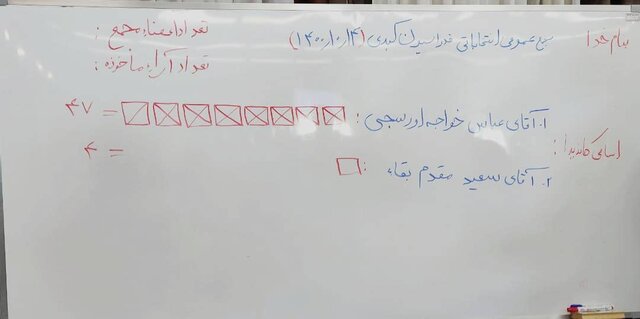 بنام خدا
مجمع عمومی انتخاباتی فدراسیون کبدی (۱۴۰۰/۱۰/۱۴)
تعداد اعضاء مجمع :
تعداد آراء ماخوذه :
اسامی کاندیدا :
۱. آقای عباس خواجه اورسجی : = ۴۷
۲. آقای سعید مقدم بقاء : = ۴